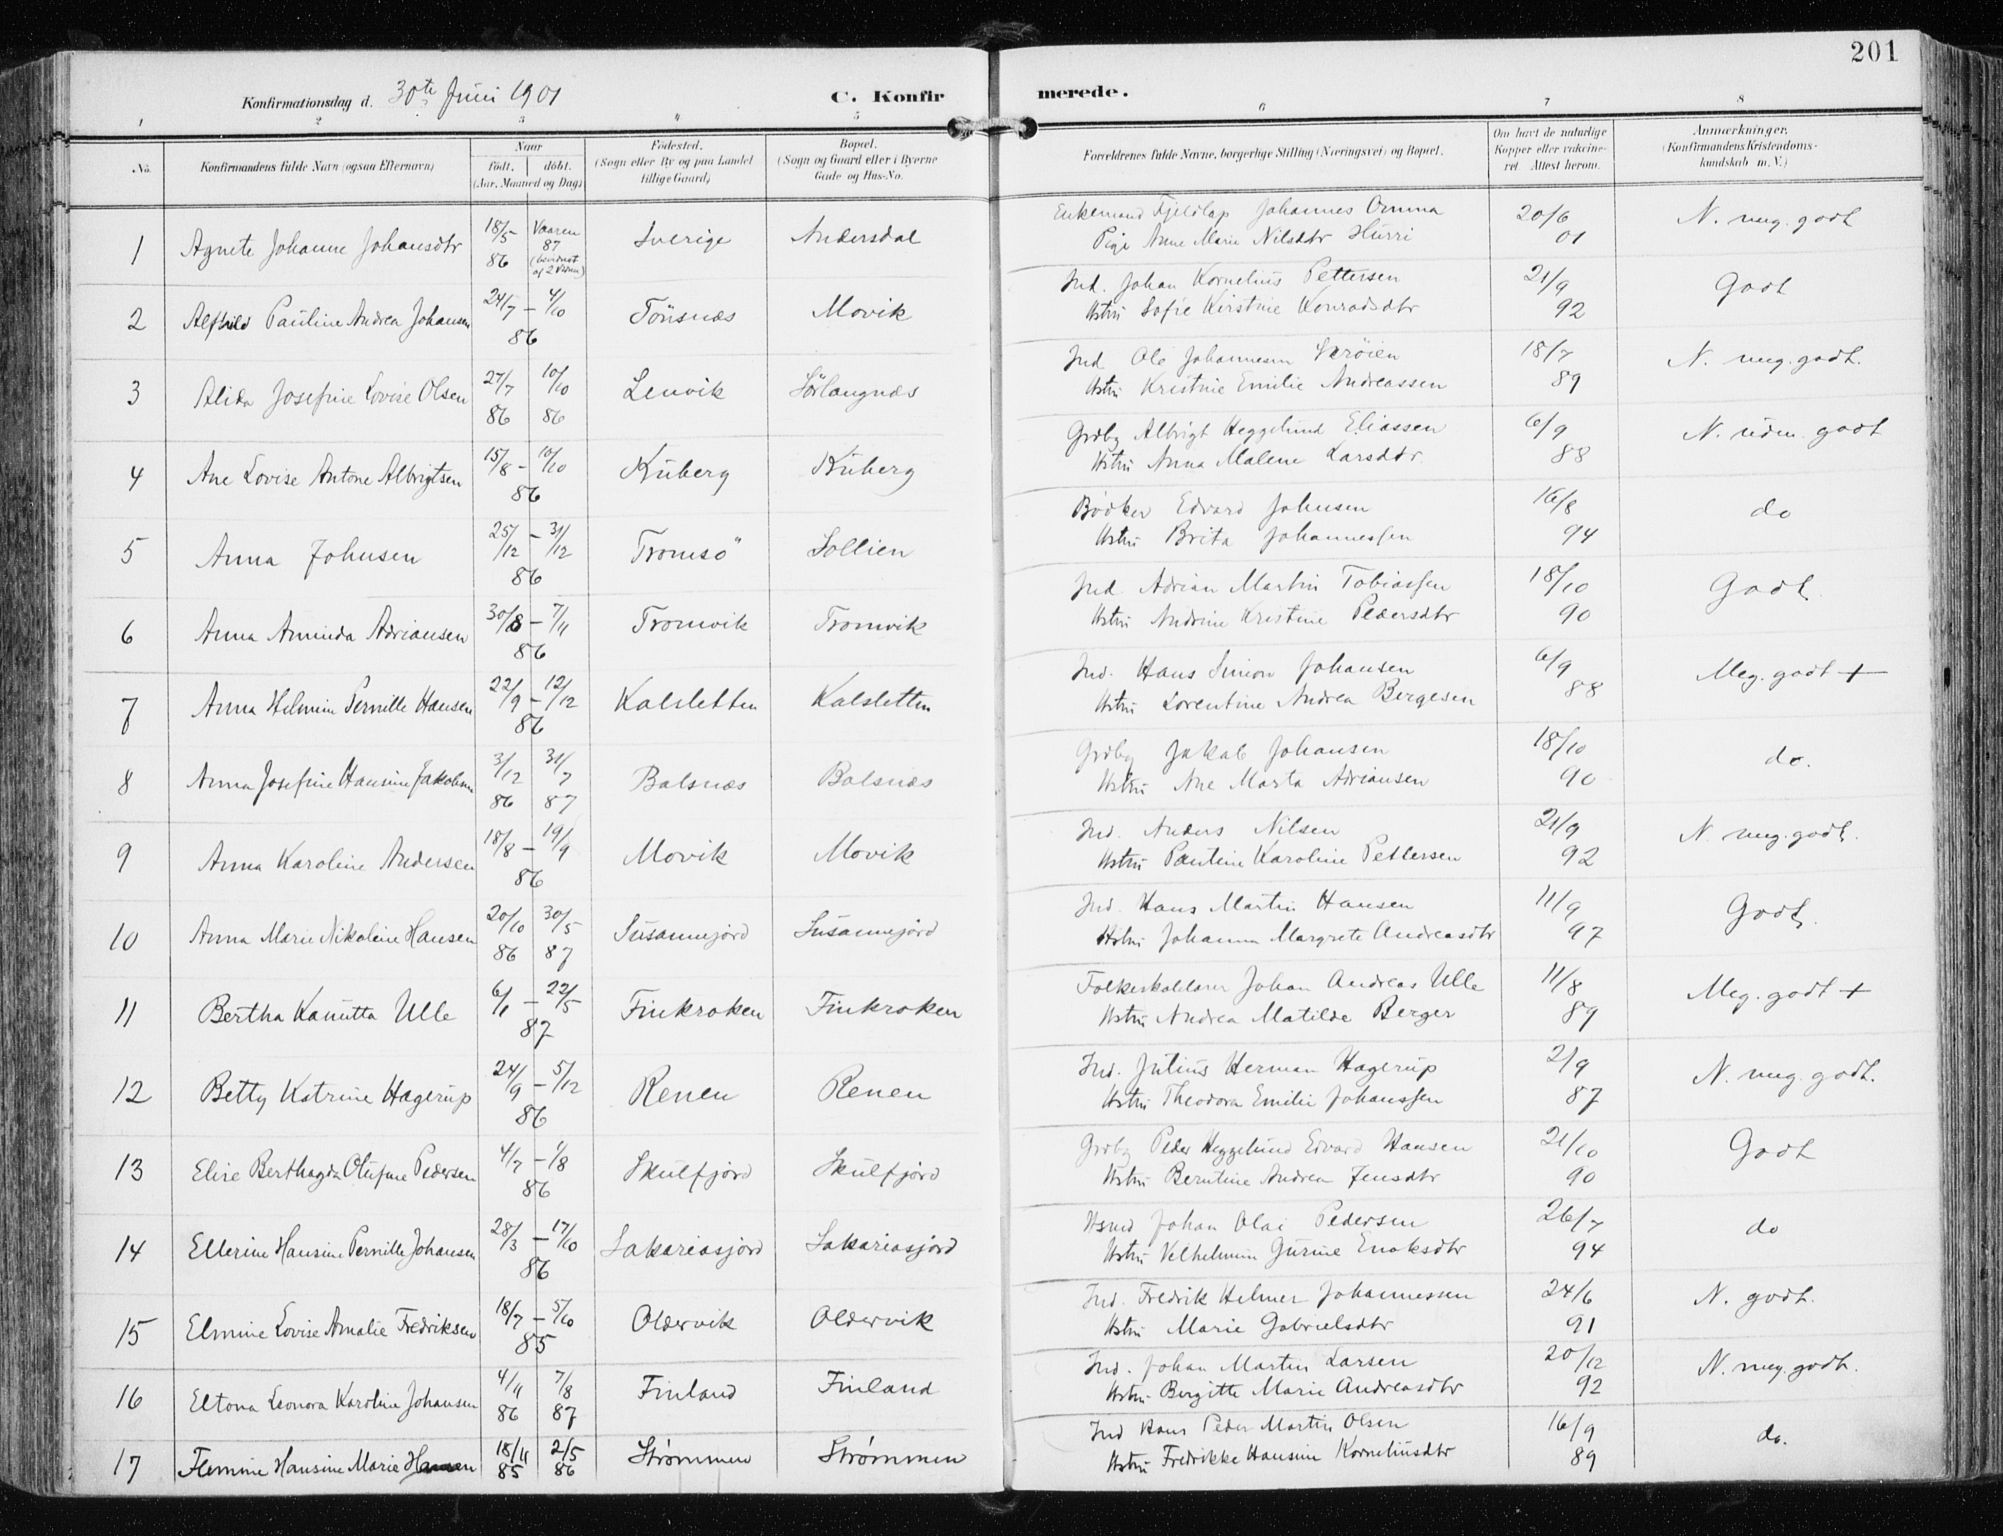 201
Konfirmationsdag d. 30te Juni 1901 C. Konfirmerede.
1 2 3 4 5 6 7 8
No. Konfirmandens fulde Navn (ogsaa Efternavn) Naar født. døbt. (Aar, Maaned og Dag) Fødested. (Sogn eller By og paa Landet tillige Gaard) Bopæl. (Sogn og Gaard eller i Byerne Gade og Hus-No. Forældrenes fulde Navne, borgerlige Stilling (Næringsvei) og Bopæl. Om havt de naturlige Kopper eller vaccineret. Attest herom. Anmærkninger. (Konfirmandens Kristendomskundskab m. V.)
1 Agnete Johanne Johansdtr 18/5 86 Vaaren 87 (bevidnet af 2 Vidner) Sverige Andersdal Enkemand Fjeldlap Johannes Omma 20/6 01 N. meg. godt
Pige Anne Marie Nilsdtr Hurri
2 Alfhild Pauline Andrea Johansen 24/7 – 4/10 86 Tönsnæs Movik Ind. Johan Kornelius Pettersen 21/9 92 Godt
Hstru Sofie Kirstine Konradsdtr
3 Alida Josefine Lovise Olsen 27/7 86 10/10 86 Lenvik Sörlangnæs Ind Ole Johannesen 18/7 89 N. meg. godt.
Hstru Kristine Emilie Andreassen
4 Ane Lovise Antone Albrigtsen 15/8 – 10/10 86 Kuberg Kuberg Grdbg Albrigt Heggelund Eliassen 6/9 88 N. uden godt
Hstru Anna Malene Larsdtr.
5 Anna Johnsen 25/12 – 31/12 86 Tromsö Sollien Bödker Edvard Johnsen 16/8 94 do
Hstru Brita Johannessen
6 Anna Aminda Adriansen 30/8 – 7/11 86 Tromvik Tromvik Ind. Adrian Martin Tobiassen 18/10 90 Godt.
Hstru Andrine Kristine Pedersdtr
7 Anna Helmine Pernille Hansen 22/9 – 12/12 86 Kalsletten Kalsletten Ind. Hans Simon Johansen 6/9 88 Meg. godt +
Hstru Lorentine Andrea Bergesen
8 Anna Josefine Hansine Jakobsen 3/12 86 31/7 87 Balsnæs Balsnæs Grdbg Jakob Johansen 18/10 90 do.
Hstru Ane Marta Adriansen
9 Anna Karoline Andersen 18/8 – 19/9 86 Movik Movik Ind. Anders Nilsen 21/9 92 N. meg. godt.
Hstru Pauline Karoline Pettersen
10 Anna Marie Nikoleine Hansen 20/10 86 30/5 87 Susannejord Susannejord Ind. Hans Martin Hansen 11/9 97 Godt.
Hstru Johanna Margrete Andreasdtr
11 Bertha Kanutta Ulle 6/1 – 22/5 87 Finkroken Finkroken Folkeskolelærer Johan Andreas Ulle 11/8 89 Meg. godt +
Hstru Andrea Matilde Berger
12 Betty Katrine Hagerup 24/9 – 5/12 86 Renen Renen Ind. Julius Herman Hagerup 2/9 87 N. meg. godt.
Hstru Theodora Emilie Johanssen
13 Elise Berthagda Olufine Pedersen 4/7 – 1/8 86 Skulfjord Skulfjord Grdbg Peder Heggelund Edvard Hansen 21/10 90 Godt
Hstru Berntine Andrea Jensdtr
14 Ellerine Hansine Pernille Johansen 28/3 – 17/10 86 Sakariasjord Sakariasjord Hsmd Johan Olai Pedersen 26/7 94 do
Hstru Velhelmine Gurine Enoksdtr
15 Elmine Lovise Amalie Fredriksen 18/7 – 5/10 85 Oldervik Oldervik Ind. Fredrik Helmer Johannessen 24/6 91 N. godt.
Hstru Marie Gabrielsdtr
16 Eltona Leonora Karoline Johansen 4/11 86 7/8 87 Finland Finland Ind. Johan Martin Larsen 20/12 92 N. meg. godt.
Hstru Bergitte Marie Andreasdtr
17 Flemine Hansine Marie Hansen 18/11 85 2/5 86 Strømmen Strømmen Ind Hans Peder Martin Olsen 16/9 89 do.
Hstru Fredrikke Hansine Korneliusdtr